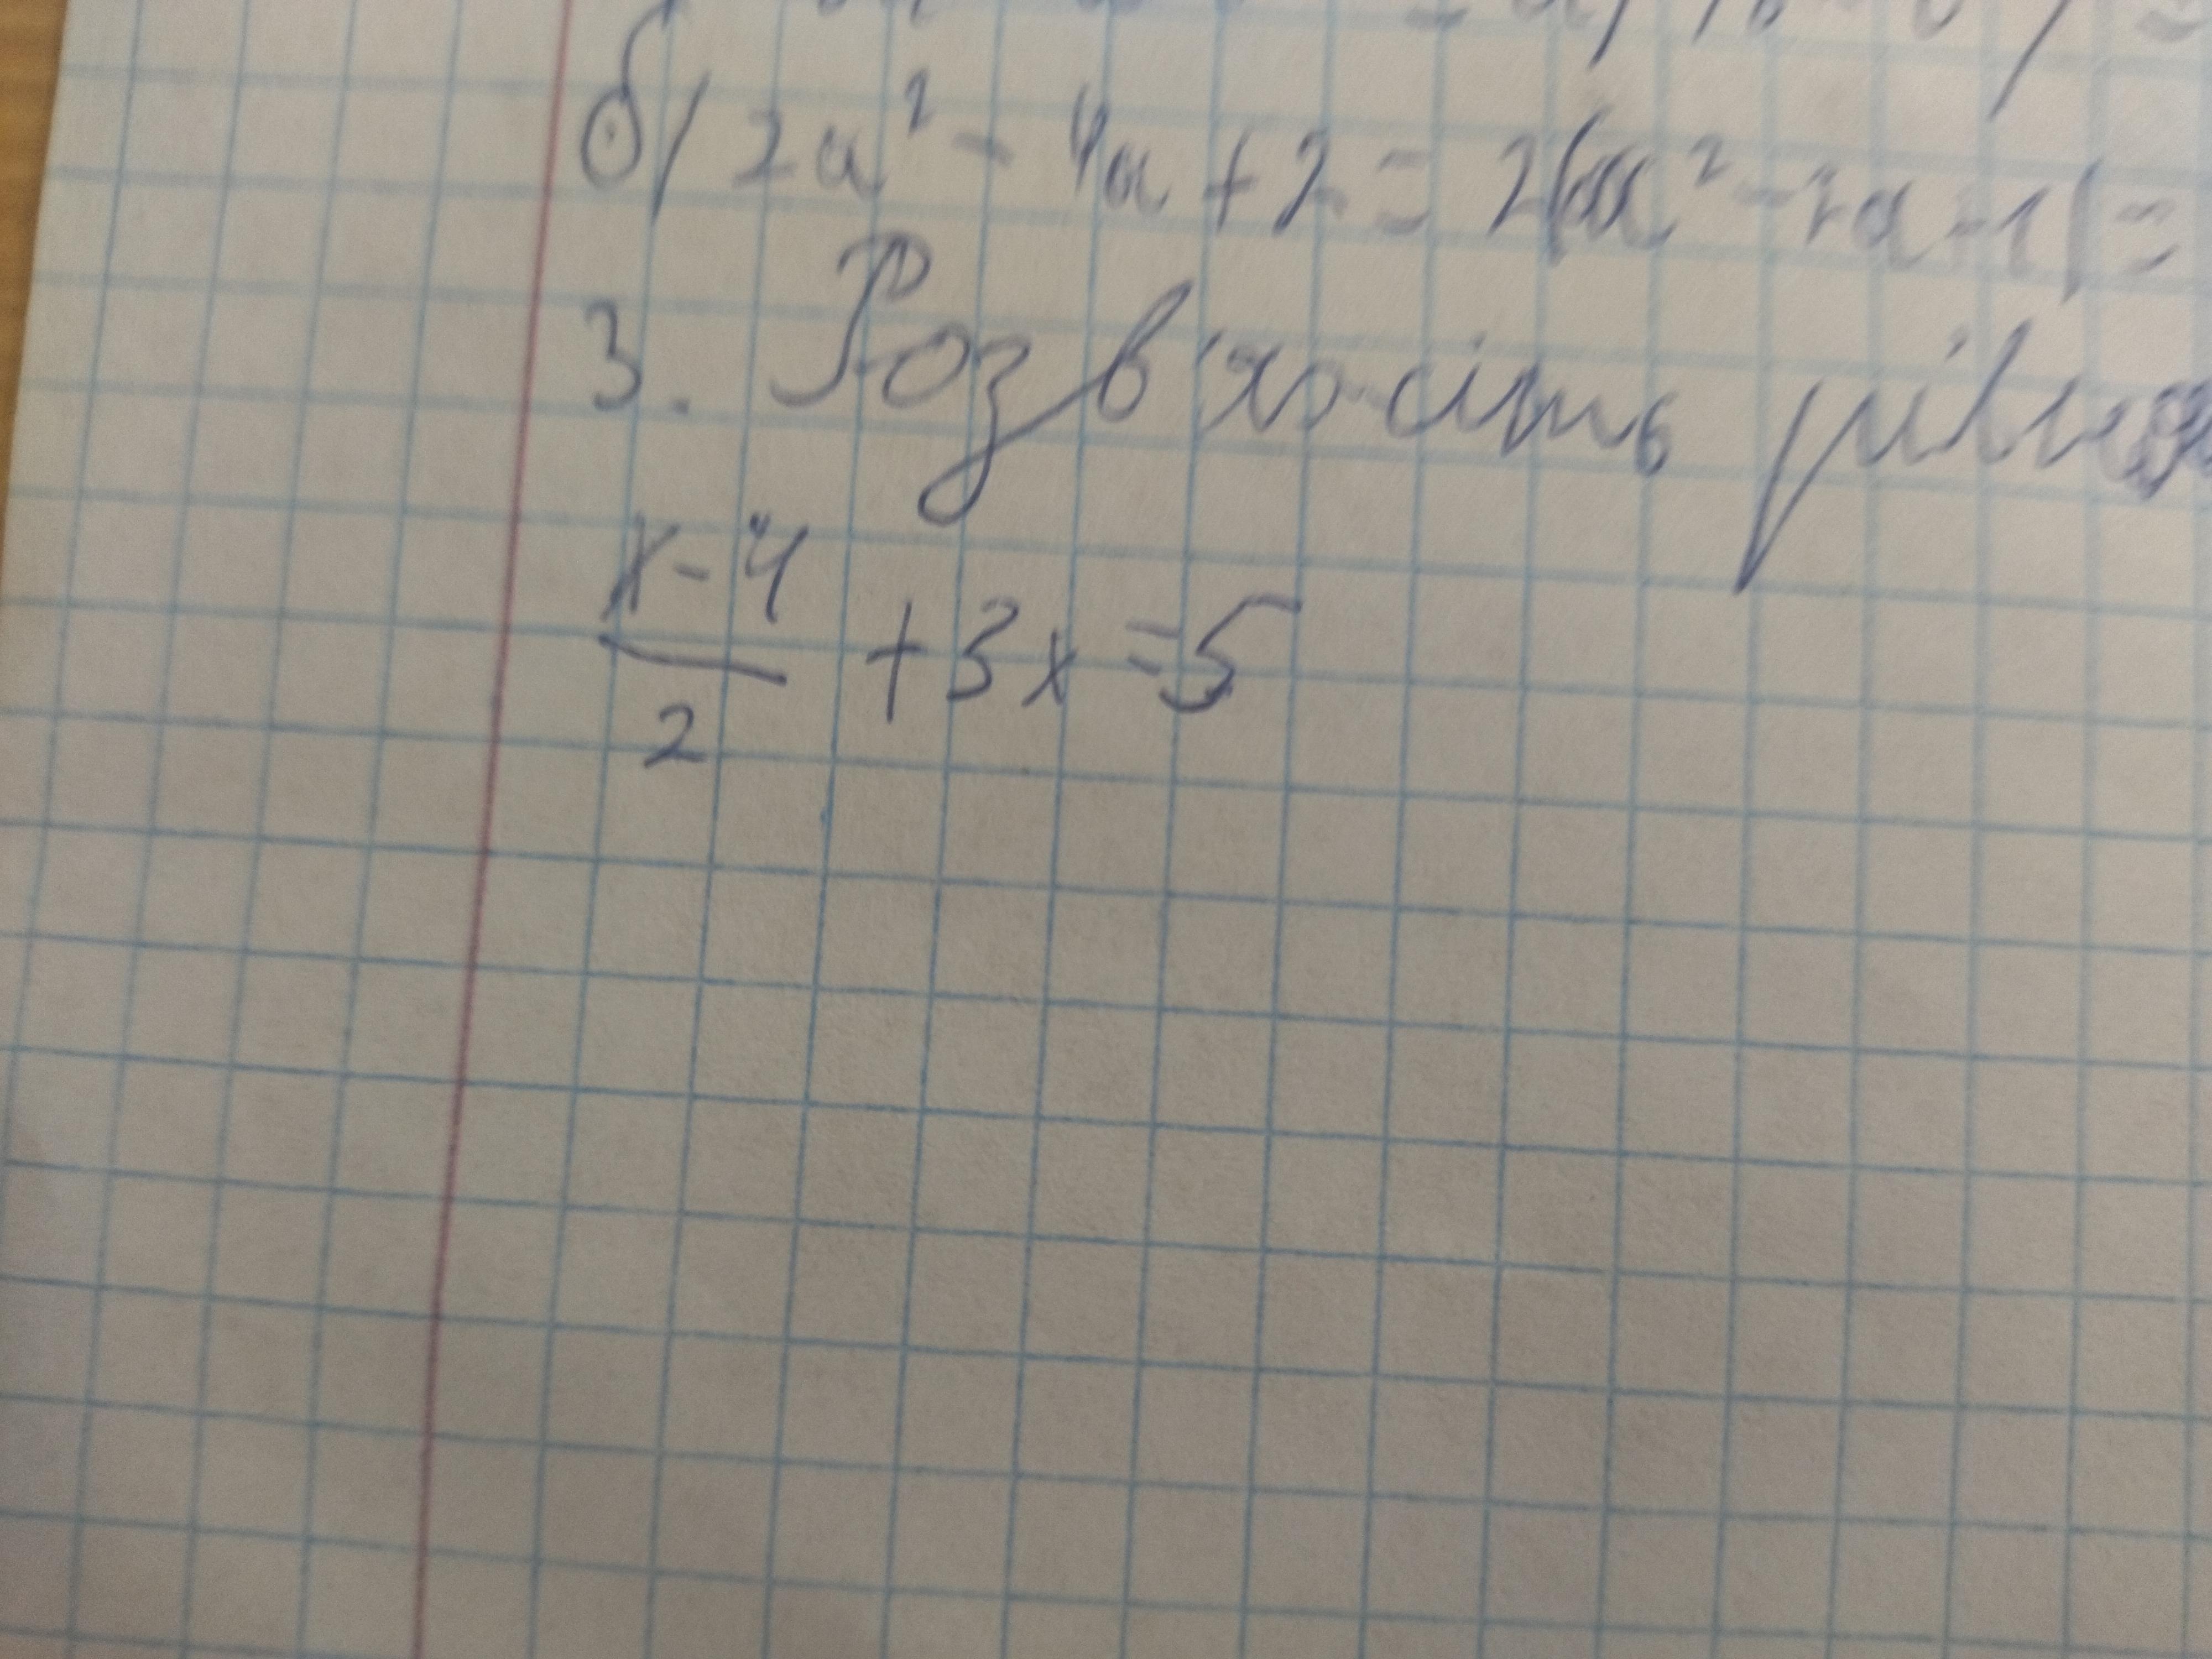 б) 2a² - 4a + 2 = 2(a² - 2a + 1) =
3. Розв'яжіть рівня
x-4
2
+ 3x = 5